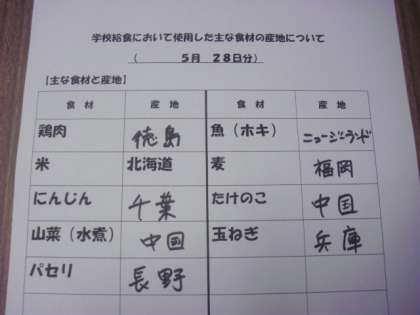 学校給食において使用した主な食材の産地について
（　　　５月　２８日分）
【主な食材と産地】
食　材　産　地　食　材　産　地
鶏肉　徳島　魚（ホキ）　ニュージーランド
米　北海道　麦　福岡
にんじん　千葉　たけのこ　中国
山菜（水煮）　中国　玉ねぎ　兵庫
パセリ　長野